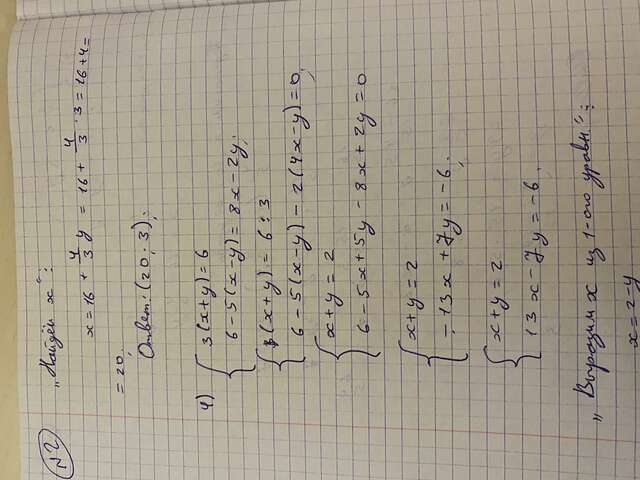 №2
"Найдём x":
x = 16 + 4/3 y = 16 + 4/3 · 3 = 16 + 4 =
= 20.
Ответ: (20; 3);
4) { 3(x+y) = 6
6 - 5(x-y) = 8x - 2y;
{ 3(x+y) = 6 : 3
6 - 5(x-y) - 2(4x-y) = 0;
{ x+y = 2
6 - 5x + 5y - 8x + 2y = 0
{ x+y = 2
-13x + 7y = -6;
{ x+y = 2
13x - 7y = -6.
"Выразим x из 1-ого уравн.":
x = 2-y